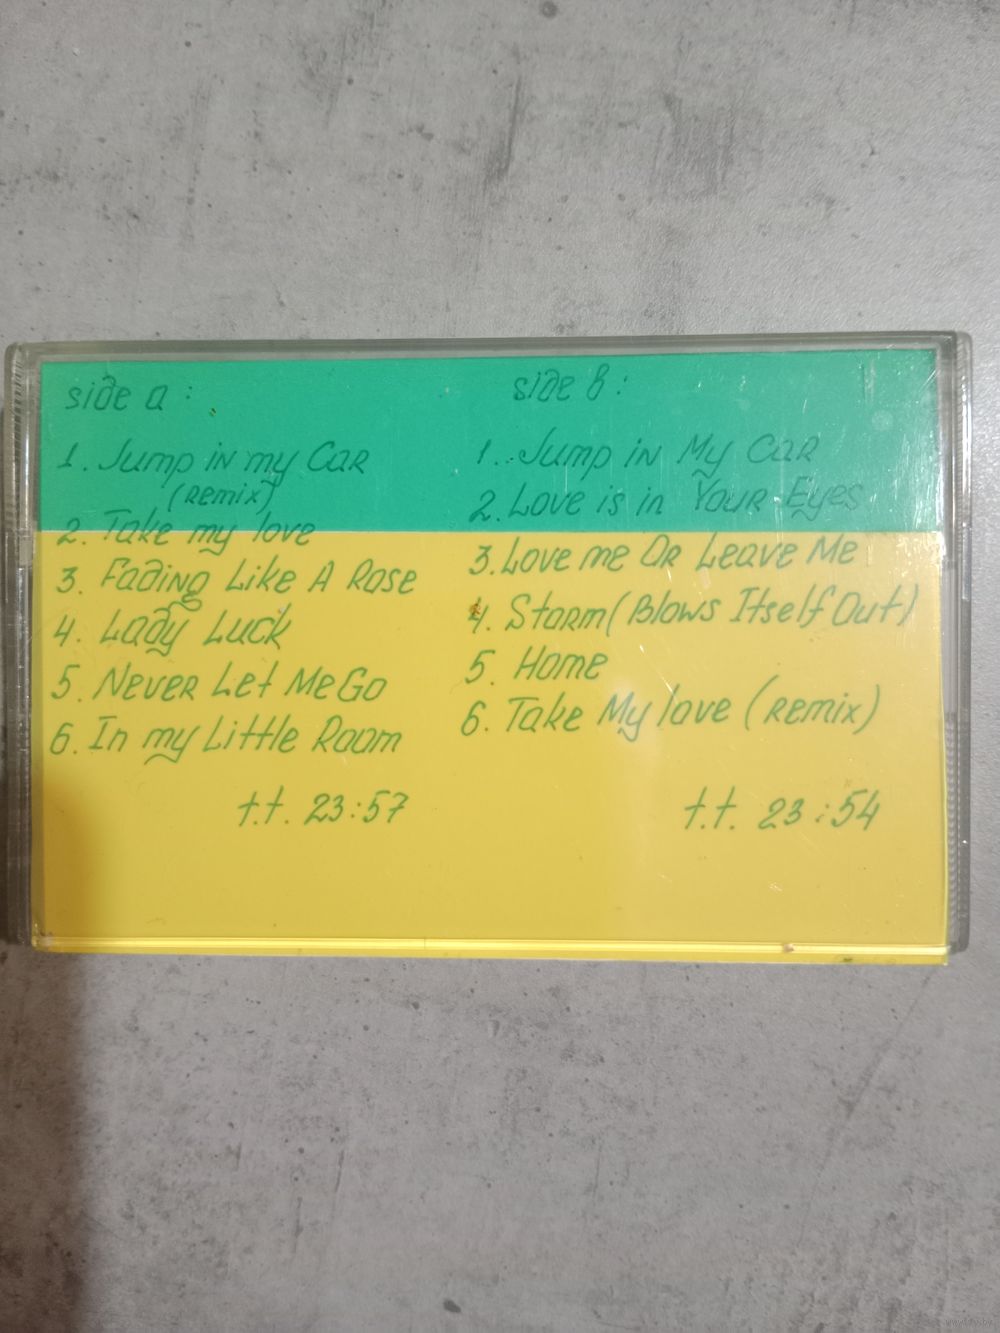 side a:
1. Jump in my Car
(remix)
2. Take my love
3. Fading Like A Rose
4. Lady Luck
5. Never Let Me Go
6. In my Little Room
t.t. 23:57
side b:
1. Jump in My Car
2. Love is in Your Eyes
3. Love me Or Leave Me
4. Storm (Blows Itself Out)
5. Home
6. Take My love (remix)
t.t. 23:54